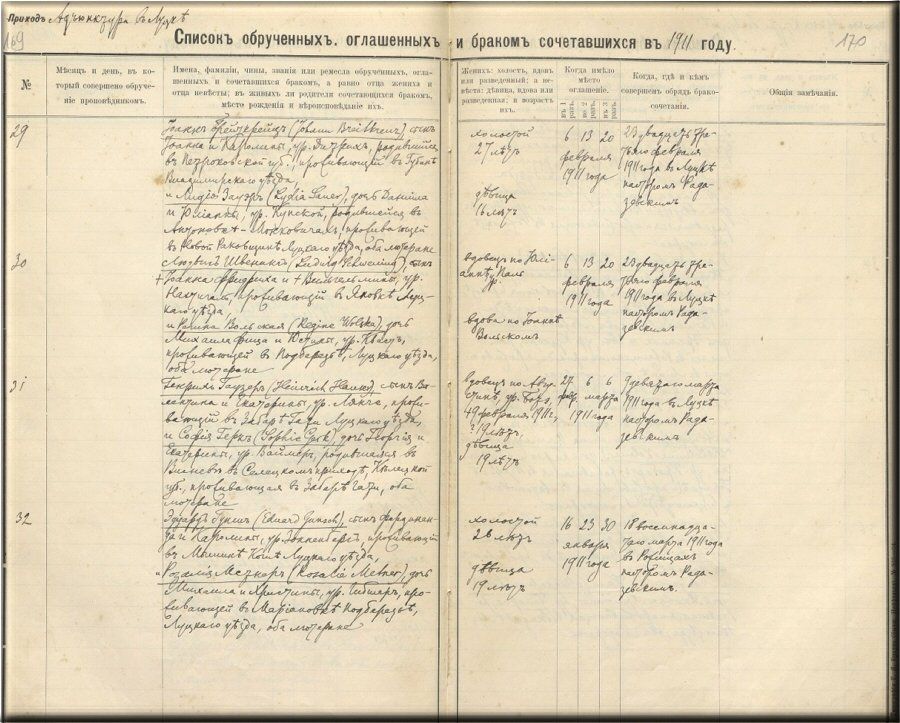 Приходъ Адъюнктура въ Луцкѣ
169
170
Списокъ обрученныхъ, оглашенныхъ и бракомъ сочетавшихся въ 1911 году.
№
Мѣсяцъ и день, въ который совершено обрученіе проповѣдникомъ.
Имена, фамиліи, чины, званія или ремесла обрученныхъ, оглашенныхъ и сочетавшихся бракомъ, а равно отца жениха и отца невѣсты; въ живыхъ ли родители сочетающихся бракомъ, мѣсто рожденія и вѣроисповѣданіе ихъ.
Женихъ: холостъ, вдовъ или разведенный; а невѣста: дѣвица, вдова или разведенная; и возрастъ ихъ.
Когда имѣло мѣсто оглашеніе.
въ 1 разъ.
во 2 разъ.
въ 3 разъ.
Когда, гдѣ и кѣмъ совершенъ обрядъ бракосочетанія.
Общія замѣчанія.
29
(Johann Breitkreuz) сынъ
Іоанна и Каролины, ур. Дитрихъ, родившійся
въ Петроковской губ., проживающій въ
Владимирскаго уѣзда
и Лидія Зауэръ (Lydia Sauer), дочь Даніила
и Юліанны, ур. родившейся въ
Антоновкѣ - проживающей
въ Новой Раковщинѣ Луцкаго уѣзда, оба лютеране
холостой
27 лѣтъ
дѣвица
16 лѣтъ
6 13 20
февраля
1911 года
23 двадцать тре-
тьяго февраля
1911 года въ Луцкѣ
пасторомъ Рада-
севскимъ
30
Людвигъ (Ludwig Schwening) сынъ
+ Іоанна Фридриха и + Вильгельмины, ур.
проживающій въ Яновкѣ Луц-
каго уѣзда
и Регина Вольская (Regine Wolska), дочь
Михаила и ур.
проживающей въ Подберезьѣ, Луцкаго уѣзда,
оба лютеране
вдовецъ по Юлі-
аннѣ ур.
вдова по Іоаннѣ
Вольскомъ
6 13 20
февраля
1911 года
23 двадцать тре-
тьяго февраля
1911 года въ Луцкѣ
пасторомъ Рада-
севскимъ
31
Генрихъ Гаузеръ (Heinrich Hauser) сынъ Ва-
лентина и Екатерины, ур. прожи-
вающій въ Луцкаго уѣзда
и Софія (Sophie) дочь Георгія и
Екатерины, ур. родившаяся въ
въ приходѣ, Кѣлецкой
губ., проживающая въ оба
лютеране
вдовецъ по Авгу-
стинѣ, ур.
февраля 1911 г.,
дѣвица
19 лѣтъ
27 6 6
фвр. марта
1911 года
9 девятаго марта
1911 года въ Луцкѣ
пасторомъ Рада-
севскимъ
32
Эдуардъ (Eduard) сынъ Фердинан-
да и Каролины, ур. проживающій
въ Луцкаго уѣзда
и Розалія Мецнеръ (Rosalie Metner), дочь
Михаила и Христины, ур. про-
живающей въ Маріановкѣ Подберезьѣ,
Луцкаго уѣзда, оба лютеране
холостой
26 лѣтъ
дѣвица
19 лѣтъ
16 23 30
января
1911 года
18 восемнадца-
таго марта 1911 года
въ Рожищахъ
пасторомъ Рада-
севскимъ.